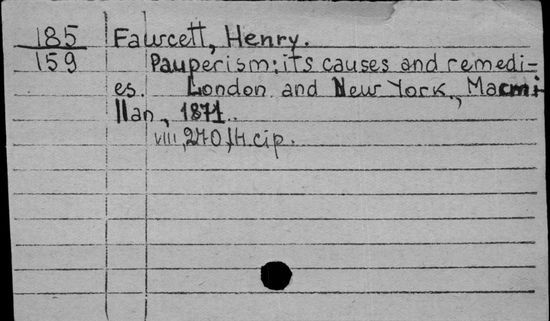 185 Fawcett, Henry.
159 Pauperism; its causes and remedi=
es. London and New York, Macmi
llan, 1871.
VIII, 270 str. cip.